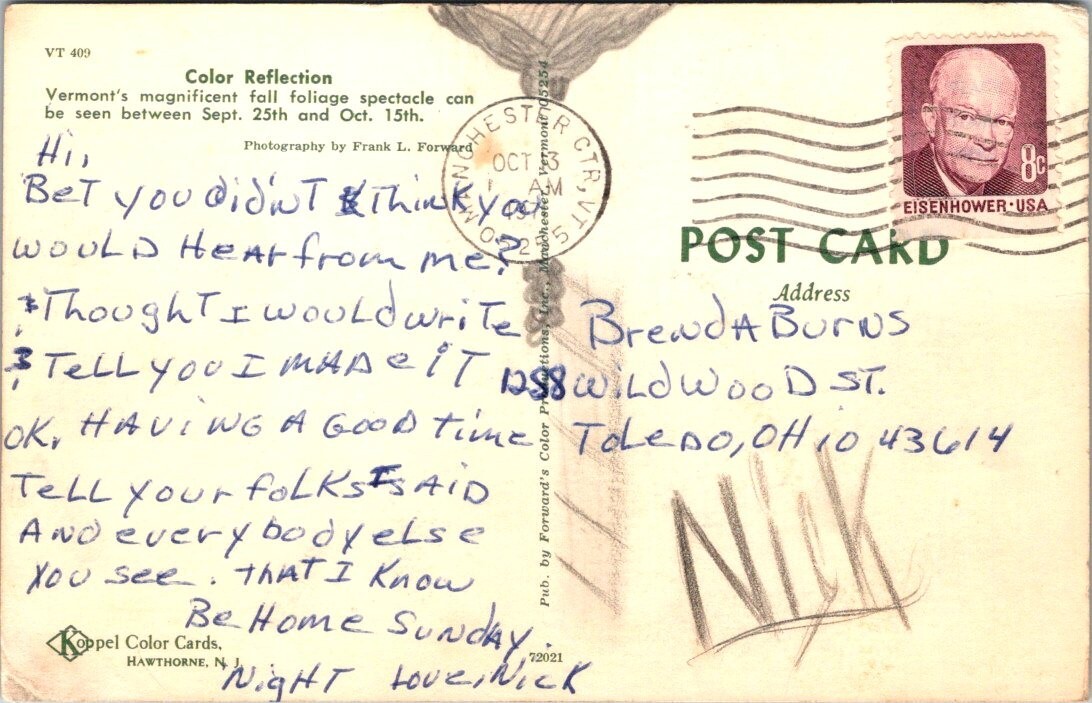 VT 409
Color Reflection
Vermont's magnificent fall foliage spectacle can
be seen between Sept. 25th and Oct. 15th.
Photography by Frank L. Forward
Hi,
Bet you didn't think you
would Hear from me?
& Thought I would write
& Tell you I made it
OK, Having A Good time
Tell your folks I said
And everybody else
you see. that I know
Be Home Sunday.
Night Love, Nick
Koppel Color Cards,
HAWTHORNE, N. J.
72021
Pub. by Forward's Color Productions, Inc., Manchester, Vermont 05254
MANCHESTER CTR, VT
OCT 3
AM
EISENHOWER·USA
8c
POST CARD
Address
Brenda Burns
Wildwood St.
Toledo, Ohio 43614
Nick